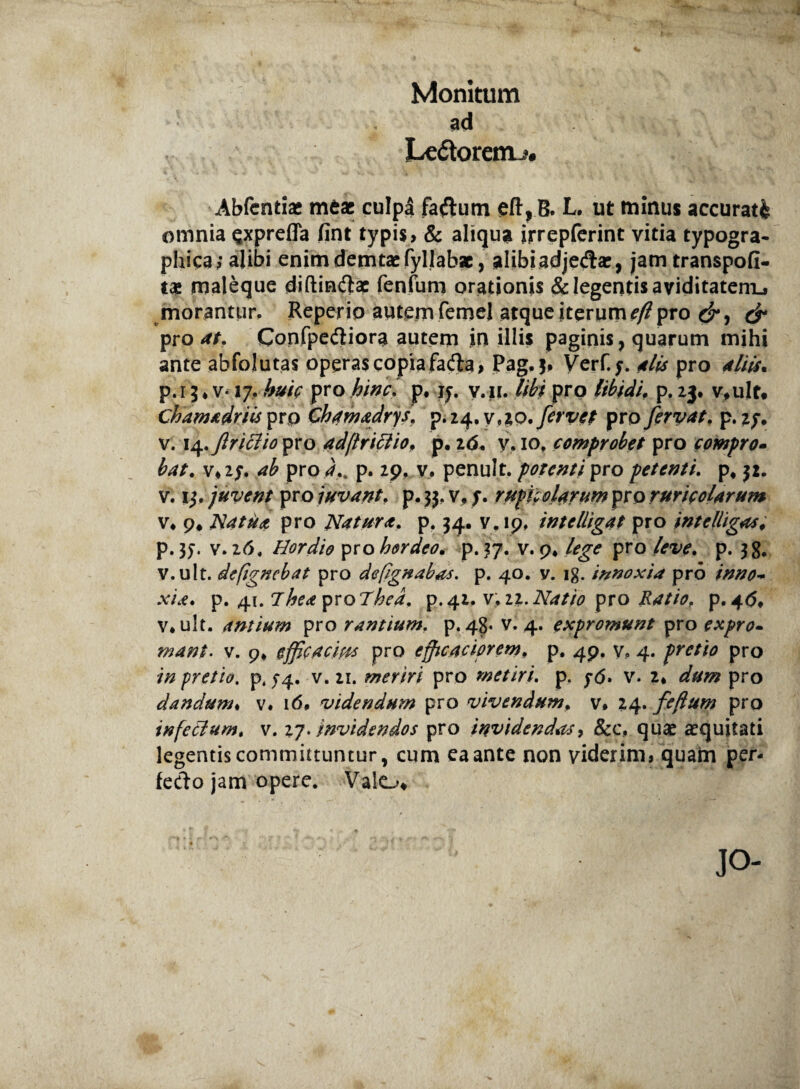 Monitum
ad
Lectorem.
Abſentiæ meæ culpâ factum eſt, B. L. ut minus accuratè
omnia expreſſa ſint typis, & aliqua irrepſerint vitia typogra-
phica; alibi enim demtæ ſyllabæ, alibi adjectæ, jam transpoſi-
tæ malèque diſtinctæ ſenſum orationis & legentis aviditatem
morantur. Reperio autem ſemel atque iterum eſt pro &, &
pro at. Conſpectiora autem in illis paginis, quarum mihi
ante abſolutas operas copia facta, Pag. 3. Verſ. 5. alis pro aliis.
p. 13. v. 17. huic pro hinc. p. 15. v. 11. libi pro libidi. p. 23. v. ult.
Chamædriis pro Chamædrys. p. 24. v. 20. fervet pro fervat. p. 25.
v. 14. ſtrictio pro adſtrictio. p. 26. v. 10. comprobet pro compro-
bat. v. 25. ab pro à. p. 29. v. penult. potenti pro petenti. p. 32.
v. 15. juvent pro juvant. p. 33. v. 5. rupicolarum pro ruricolarum
v. 9. Natûa pro Natura. p. 34. v. 19. intelligat pro intelligas.
p. 35. v. 26. Hordio pro hordeo. p. 37. v. 9. lege pro leve. p. 38.
v. ult. deſignebat pro deſignabas. p. 40. v. 18. innoxia prò inno-
xiæ. p. 41. Theæ pro Theâ. p. 42. v. 22. Natio pro Ratio. p. 46.
v. ult. antium pro rantium. p. 48. v. 4. expromunt pro expro-
mant. v. 9. efficacius pro efficaciorem. p. 49. v. 4. pretio pro
in pretio. p. 54. v. 21. meriri pro metiri. p. 56. v. 2. dum pro
dandum. v. 16. videndum pro vivendum. v. 24. feſtum pro
infectum. v. 27. invidendos pro invidendas, &c. quæ æquitati
legentis committuntur, cum ea ante non viderim, quam per-
fecto jam opere. Vale.
JO-